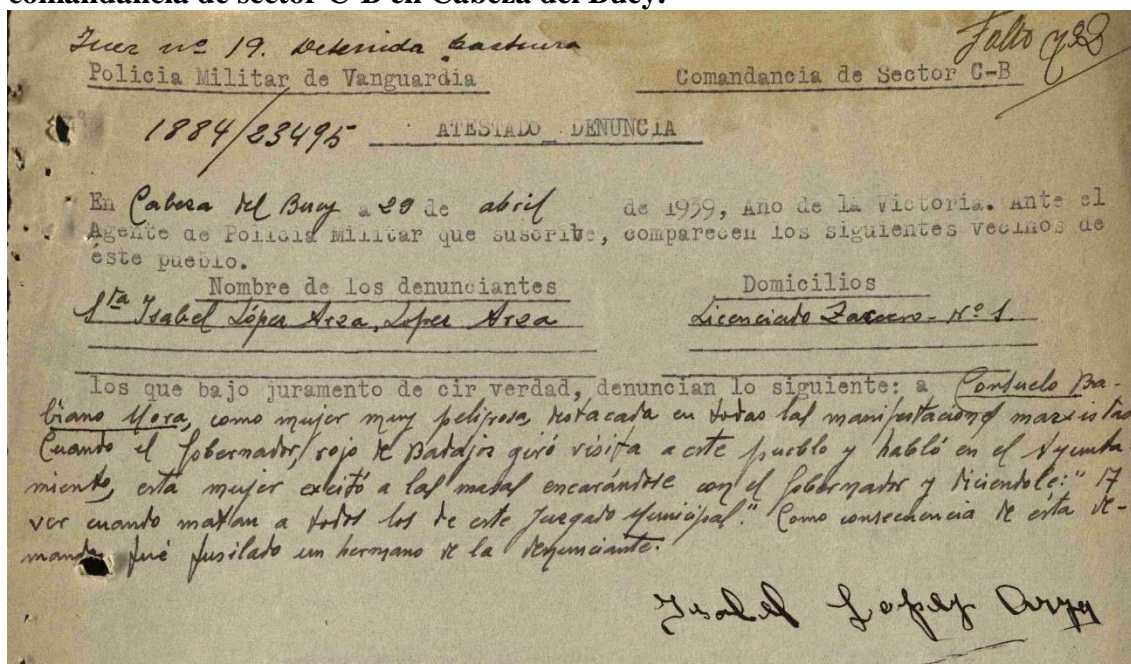 comandancia de sector C-B en Cabeza del Buey.
Juez nº 19. Detenida Castuera
Falto 938
Policia Militar de Vanguardia Comandancia de Sector C-B
1884/23495 ATESTADO DENUNCIA
En Cabeza del Buey a 29 de abril de 1939, Año de la Victoria. Ante el
Agente de Policia Militar que suscribe, comparecen los siguientes vecinos de
éste pueblo.
Nombre de los denunciantes Domicilios
Sta Isabel López Arza, Lopez Arza Licenciado - Nº 1.
los que bajo juramento de cir verdad, denuncian lo siguiente: a Consuelo Ba-
biano Mora, como mujer muy peligrosa, destacada en todas las manifestaciones marxistas
Cuando el Gobernador, rojo de Badajoz giró visita a este pueblo y habló en el Ayunta-
miento, esta mujer excitó a las masas encarándose con el Gobernador y diciendole: "A
ver cuando matan a todos los de este Juzgado Municipal." Como consecuencia de ésta de-
manda fué fusilado un hermano de la denunciante.
Isabel Lopez Arza